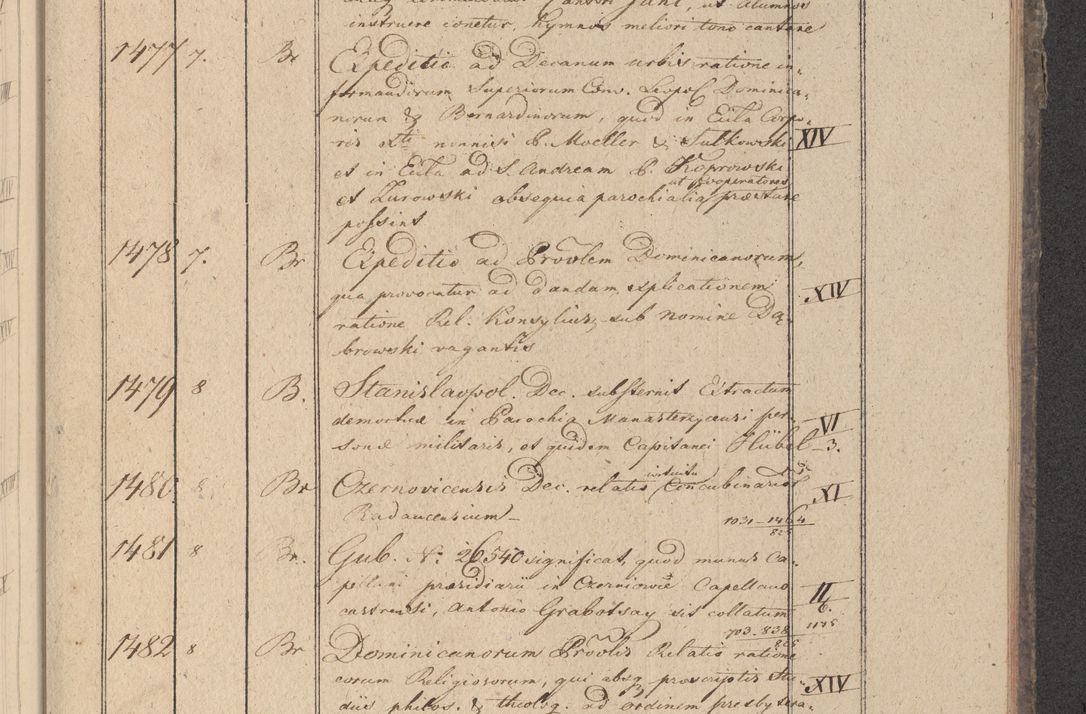 instruere conetur, hymnos meliori tono cantare
1477 7. Br Expeditio ad Decanum urbis ratione in-
formandorum Superiorum Conv. Leopol Dominica-
norum & Bernardinorum, quod in Eccla Corpo-
ris Xti nonnisi P. Moeller & Sulkowski XIV
et in Eccla ad S. Andream P. Koprowski
ut cooperatores
et Zurowski obsequia parochialia præstare
possint
1478 7. Br Expeditio ad Provlem Dominicanorum,
qua provocatur ad dandam explicationem XIV
ratione Rel. Konsylius, sub nomine Dą-
browski vagantis
1479 8 B. Stanislaopol. Dec. substernit Extractum
demortuæ in Parochia Manasterzycensi per- VI
sonæ militaris, et quidem Capitanei Hübel 3.
intuitu
1480. 8 Br Czernovicensis Dec. relatio Concubinariorum XI
Radaucensium
1031-1464
825
1481 8 Br. Gub. N: 26540 significat, quod munus Ca-
pellani præsidiarii in Czerniowic Capellano II
castrensi, Antonio Grabotsay sit collatum 6.
703. 838 1175
825
1482 8 Br Dominicanorum Provlis Relatio ratione
eorum Religiosorum, qui absq præscriptis Stu- XIV
diis philos. & theolog. ad ordinem presbytera-